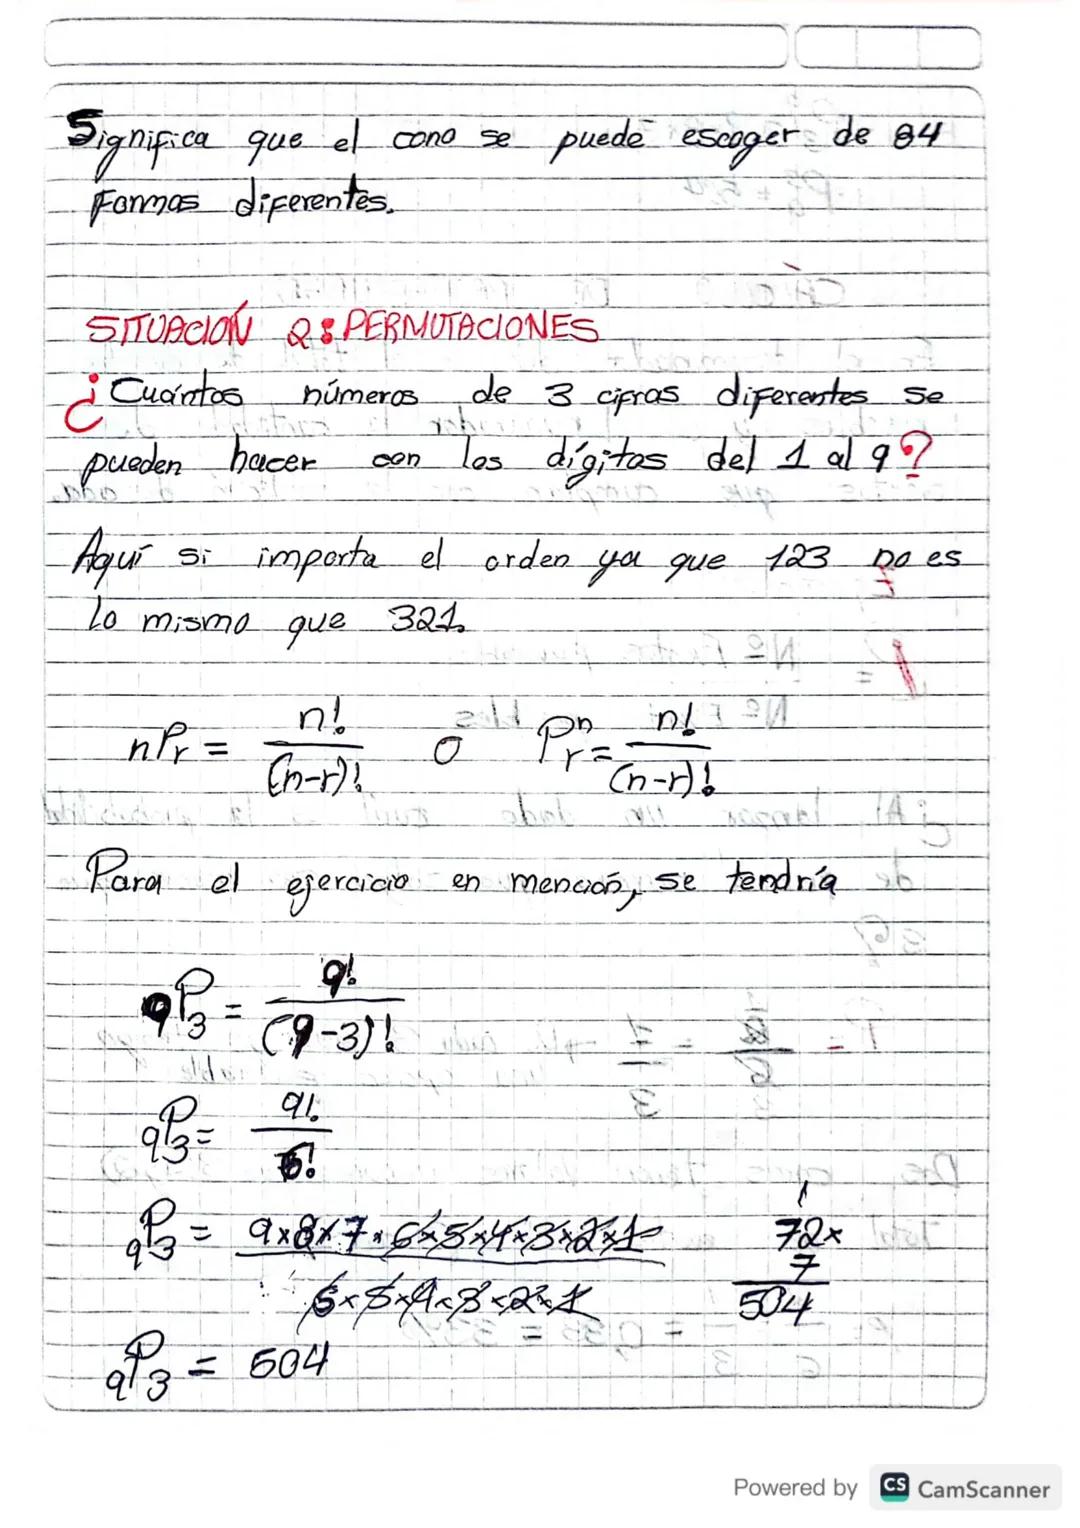 Significa que el cono se puede escoger de 84
Formas diferentes.
SITUACIÓN 2: PERMUTACIONES
¿Cuántos números de 3 cifras diferentes se
pueden hacer con los dígitos del 1 al 9?
Aquí si importa el orden ya que 123 no es
lo mismo que 321.
nPr = n! / (n-r)! o Pⁿr = n! / (n-r)!
Para el ejercicio en mención, se tendría
9P3 = 9! / (9-3)!
9P3 = 9! / 6!
9P3 = 9x8x7x6x5x4x3x2x1 / 6x5x4x3x2x1
72x
7
504
9P3 = 504
Powered by CS CamScanner